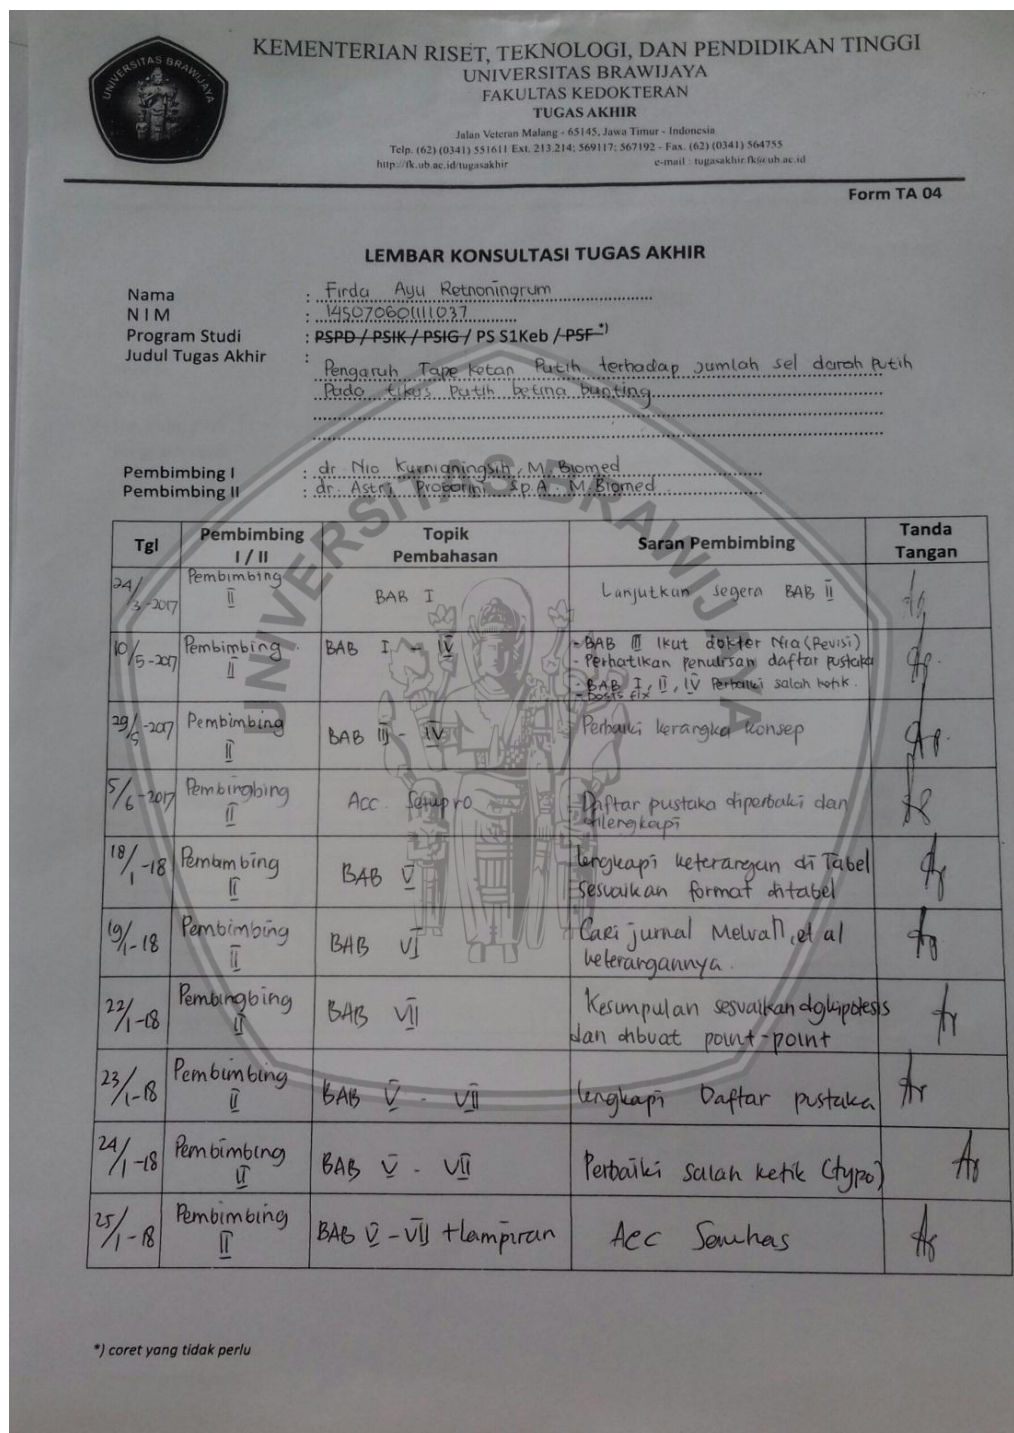 UNIVERSITAS BRAWIJAYA
KEMENTERIAN RISET, TEKNOLOGI, DAN PENDIDIKAN TINGGI
UNIVERSITAS BRAWIJAYA
FAKULTAS KEDOKTERAN
TUGAS AKHIR
Jalan Veteran Malang - 65145, Jawa Timur - Indonesia
Telp. (62) (0341) 551611 Ext. 213.214; 569117; 567192 - Fax. (62) (0341) 564755
http://fk.ub.ac.id/tugasakhir e-mail : tugasakhir.fk@ub.ac.id
Form TA 04
LEMBAR KONSULTASI TUGAS AKHIR
Nama : Firda Ayu Retnoningrum
N I M : 145070601111037
Program Studi : PSPD / PSIK / PSIG / PS S1Keb / PSF *)
Judul Tugas Akhir :
Pengaruh Tape Ketan Putih terhadap jumlah sel darah Putih
Pada tikus Putih betina bunting
Pembimbing I : dr Nia Kurnianingsih, M. Biomed
Pembimbing II : dr. Astri Proborini Sp.A M.Biomed
UNIVERSITAS BRAWIJAYA
Tgl Pembimbing I / II Topik Pembahasan Saran Pembimbing Tanda Tangan
24/3-2017 Pembimbing II BAB I Lanjutkan segera BAB II
10/5-2017 Pembimbing II BAB I - IV - BAB III Ikut dokter Nia (Revisi)
- Perhatikan penulisan daftar pustaka
- BAB I, II, IV Perbaiki salah ketik.
- Dosis fix
29/5-2017 Pembimbing II BAB III - IV Perbaiki kerangka konsep
5/6-2017 Pembingbing II Acc Sempro Daftar pustaka diperbaki dan
dilengkapi
18/1-18 Pemambing II BAB V lengkapi keterangan di Tabel
sesuaikan format ditabel
19/1-18 Pembimbing II BAB VI Cari jurnal et al
keterangannya.
22/1-18 Pembingbing II BAB VII Kesimpulan sesuaikan dg hipotesis
dan dibuat point-point
23/1-18 Pembimbing II BAB V - VII lengkapi Daftar pustaka
24/1-18 Pembimbing II BAB V - VII Perbaiki salah ketik (typo)
25/1-18 Pembimbing II BAB V - VII + lampiran Acc Semhas
*) coret yang tidak perlu